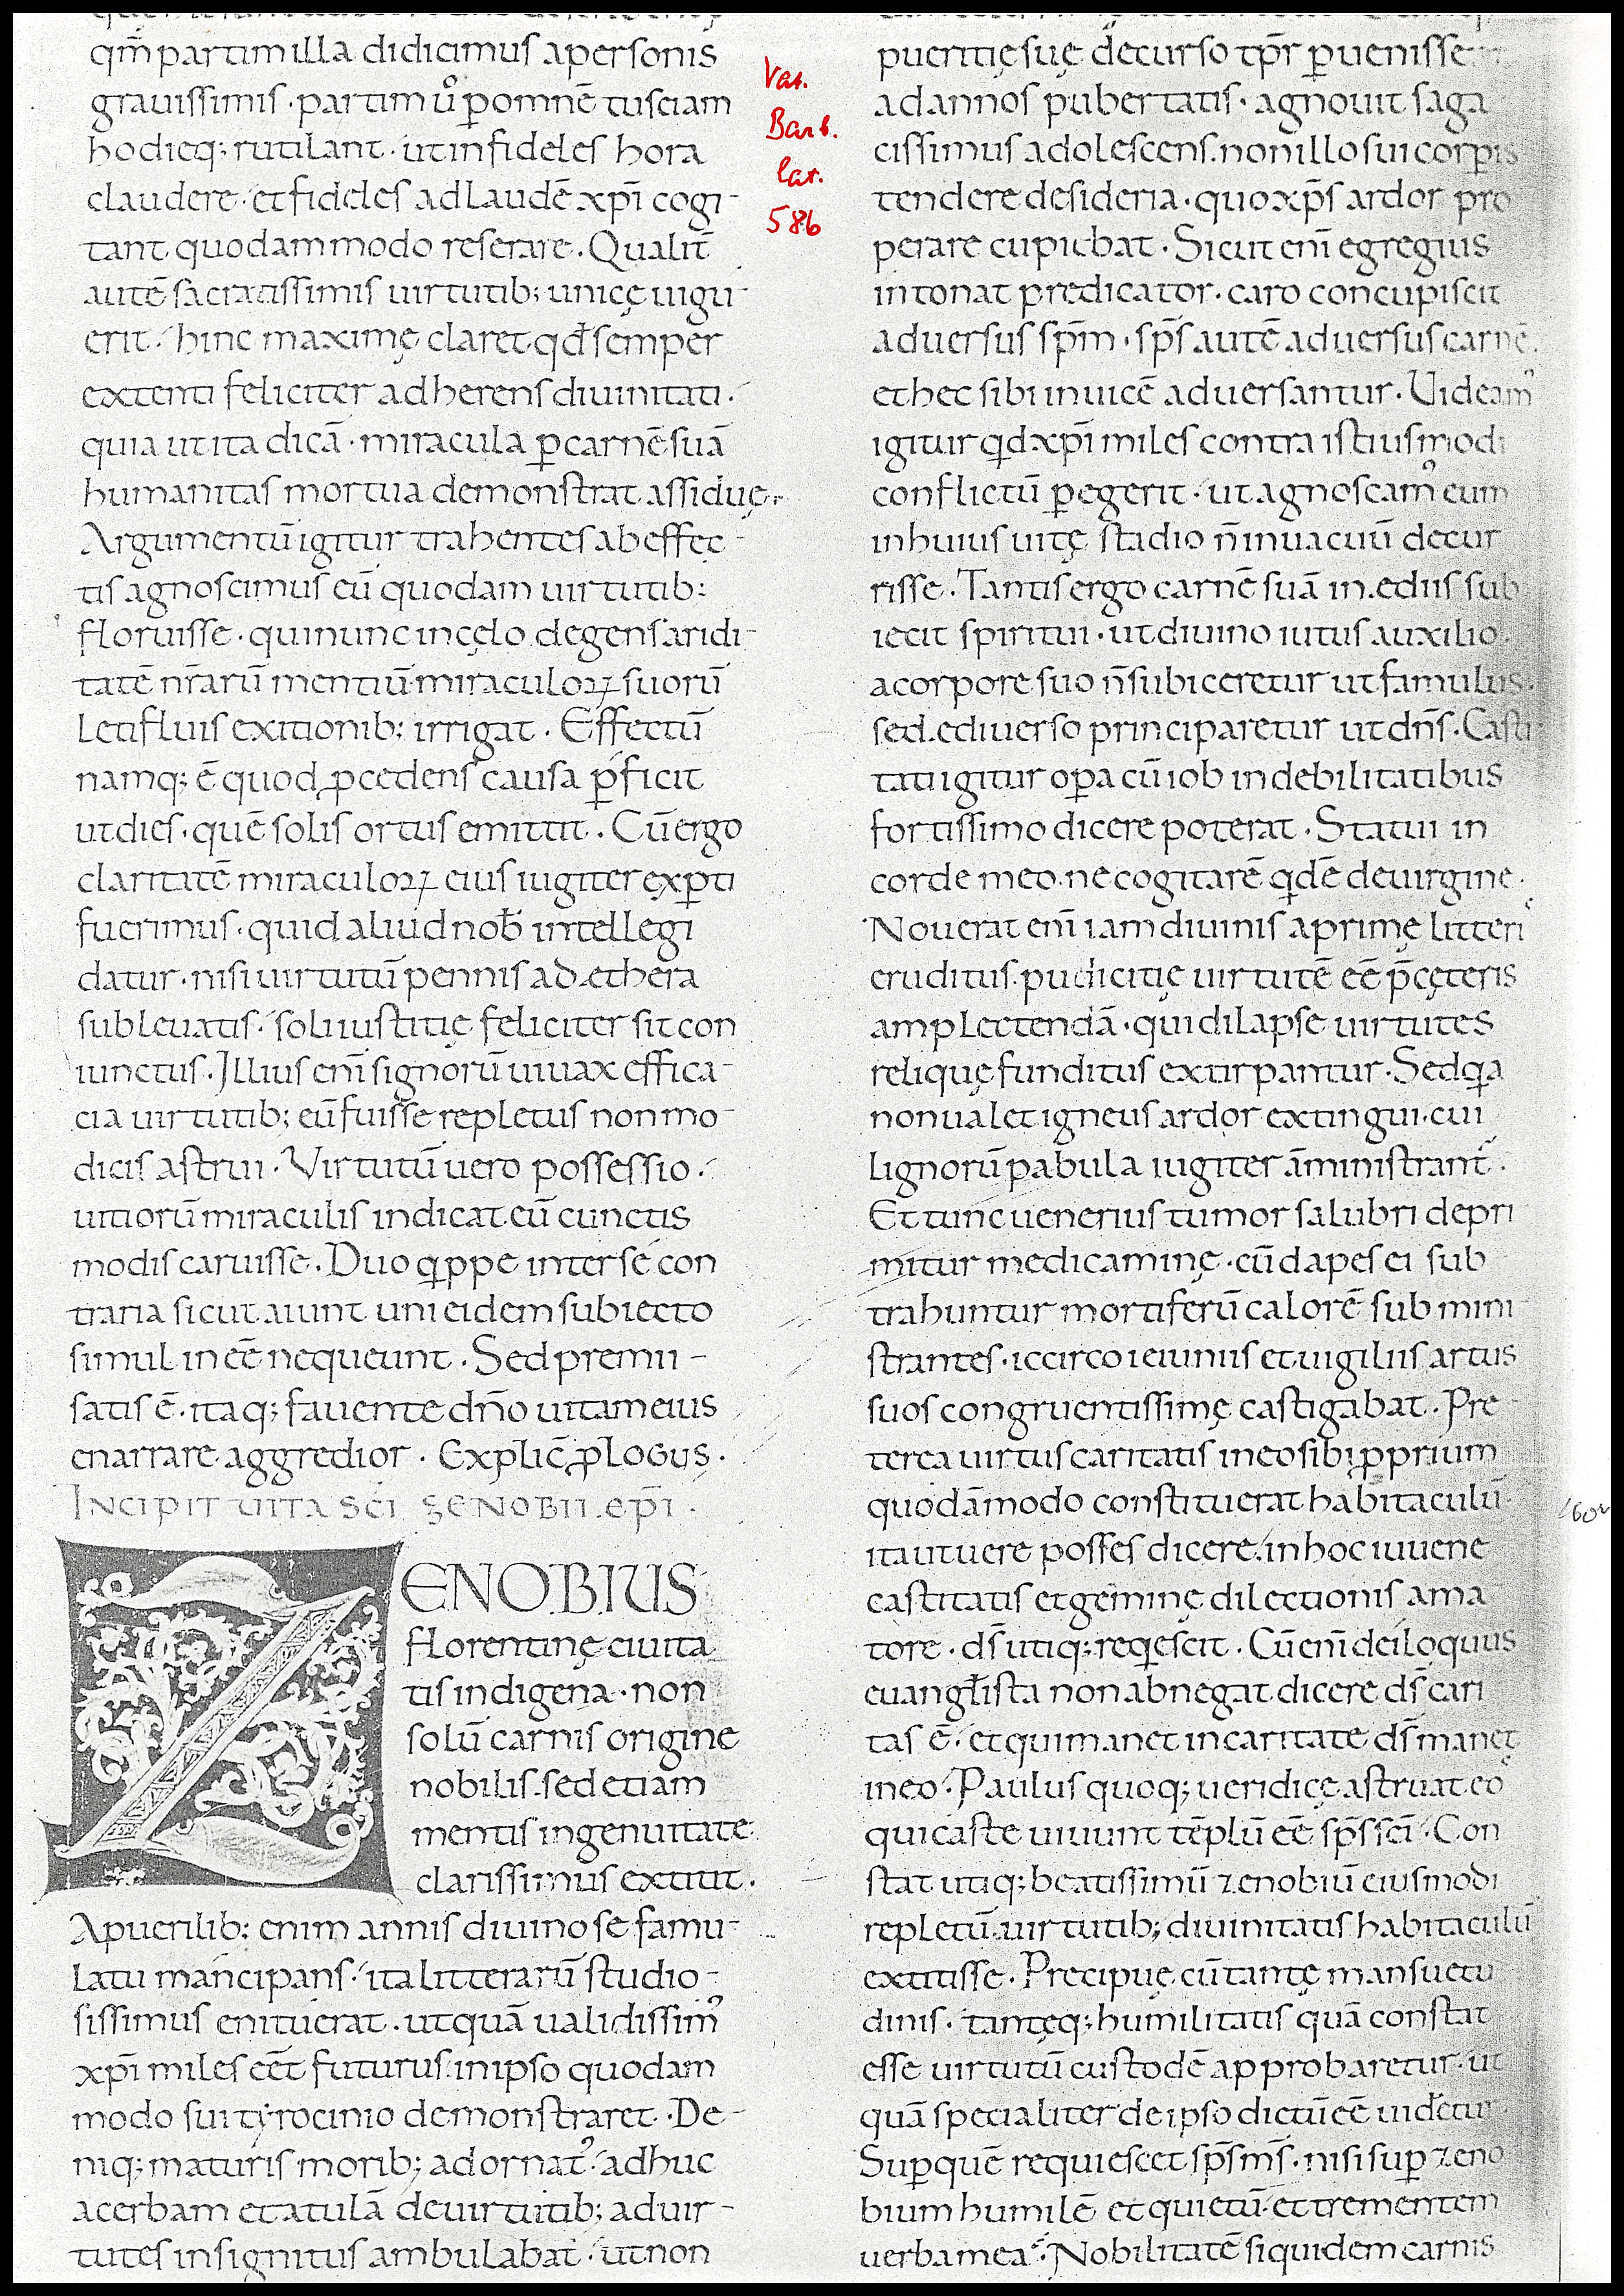 qm̄ partim illa didicimus a personis
grauissimis · partim ů ꝑ omnē tusciam
hodieq; rutilant · ut infideles hora
claudere · et fideles ad laudē xp̄i cogi-
tant quodammodo reserare . Qualit̄
autē sacratissimis uirtutib; unicę uigu-
erit · hinc maximę claret qđ semper
extenti feliciter adherens diuinitati ·
quia ut ita dicā · miracula ꝑ carnē suā
humanitas mortua demonstrat assiduę ·
Argumentū igitur trahentes ab effec-
tis agnoscimus eū quodam uirtutib:
floruisse · qui nunc in cęlo degens aridi-
tatē nr̄arū mentiū miraculoꝝ suorū
letifluis exitionib: irrigat . Effectū
namq; ē quod ꝓcedens causa ꝑficit
ut dies · quē solis ortus emittit . Cū ergo
claritatē miraculoꝝ eius iugiter exꝑti
fuerimus · quid aliud nob̄ intellegi
datur · nisi uirtutū pennis ad ethera
subleuatis · soli iustitię feliciter sit con
iunctus . Illius eni̅ signorū uiuax effica-
cia uirtutib; eū fuisse repletus non mo-
dicis astrui . Virtutū uero possessio ·
uitiorū miraculis indicat eū cunctis
modis caruisse . Duo q̇ppe inter se con
traria sicut aiunt uni eidem subiecto
simul in eē nequeunt . Sed premii -
satis ē · itaq; fauente dn̄o uitam eius
enarrare aggredior . Explic̄ ꝓlogus .
Incipit uita sc̄i zenobii ep̄i .
ZENOBIUS
florentinę ciuita
tis indigena · non
solū carnis origine
nobilis · sed etiam
mentis ingenuitate
clarissimus extitit .
A puerilib: enim annis diuino se famu-
latu mancipans · ita litterarū studio-
sissimus enituerat · ut quā ualidissim᾿
xp̄i miles eēt futurus · in ipso quodam
modo sui tyrocinio demonstraret . De-
niq; maturis morib; adornat᾿ · adhuc
acerbam etatulā de uirtutib; ad uir-
tutes insignitus ambulabat · ut non
pueritię suę decurso tp̄r ꝑuenisse
ad annos pubertatis · agnouit saga
cissimus adolescens · non illo sui corꝑis
tendere desideria · quo xp̄s ardor pro
perare cupiebat . Sicut eni̅ egregius
intonat predicator · caro concupiscit
aduersus sp̄m · sp̄s autē aduersus carnē .
et hec sibi inuicē aduersantur . Uideam᾿
igitur qđ xp̄i miles contra istiusmodi
conflictū ꝑegerit · ut agnoscam᾿ eum
in huius uitę stadio n̄ in uacuū decur
risse . Tantis ergo carnē suā inediis sub
iecit spiritui · ut diuino iutus auxilio ·
a corpore suo n̄ subiceretur ut famulus ·
sed e diuerso principaretur ut dn̄s . Casti
tati igitur oꝑa cū iob in debilitatibus
fortissimo dicere poterat . Statui in
corde meo · ne cogitarē q̇dē de uirgine ·
Nouerat eni̅ iam diuinis aprimę litteri᾿
eruditus · pudicitię uirtutē eē p̄ cęteris
amplectendā · qui dilapse uirtutes
reliquę funditus extirpantur . Sed q̇a
non ualet igneus ardor extingui · cui
lignorū pabula iugiter āministrant᾿ .
Et tunc uenerius tumor salubri depri
mitur medicaminę · cū dapes ei sub
trahuntur mortiferū calorē submini
strantes · iccirco ieiuniis et uigiliis artus
suos congruentissimę castigabat . Pre-
terea uirtus caritatis in eo sibi ꝓprium
quodāmodo constituerat habitaculū
ita ut uere posses dicere · in hoc iuuene
castitatis et geminę dilectionis ama
tore · ds̄ utiq; req̇escit . Cū eni̅ deiloquus
euangłista non abnegat dicere ds̄ cari
tas ē · et qui manet in caritate ds̄ manet
in eo . Paulus quoq; ueridicę astruat eo᾿
qui caste uiuunt tēplū eē sp̄s sc̄i . Con
stat utiq; beatissimū zenobiū eiusmodi
repletū uirtutib; diuinitatis habitaculū
extitisse . Precipuę cū tantę mansuetu
dinis · tantęq; humilitatis quā constat
esse uirtutū custodē approbaretur · ut
quā specialiter de ipso dictū eē uidetur
Suꝑ quē requiescet sp̄s ms̄ · nisi suꝑ zeno
bium humilē et quietū · et trementem
uerba mea . Nobilitatē siquidem carnis
Vat.
Barb.
lat.
586